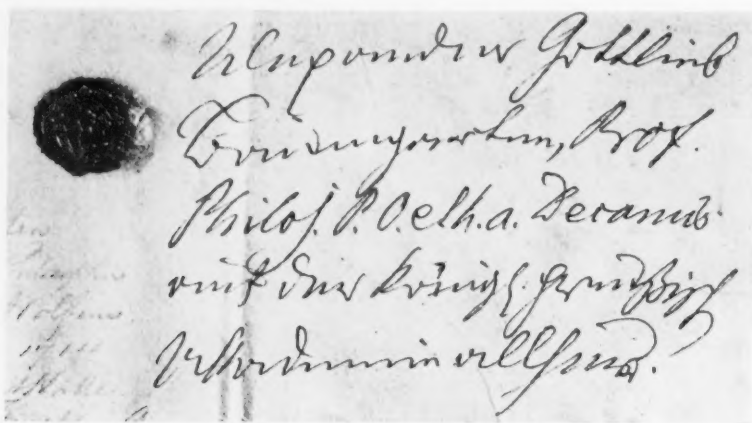 Alexander Gottlieb
Baumgarten, Prof.
Philos. P. O. et h. a. Decanus
auf der Königl. Preußisch
Academie allhier.